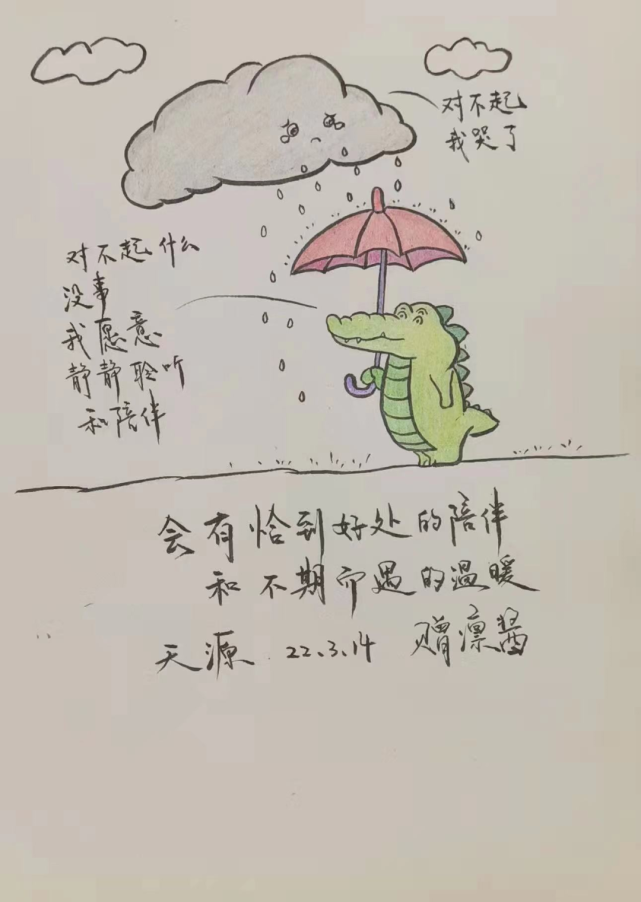 对不起
我哭了
对不起什么
没事
我愿意
静静聆听
和陪伴
会有恰到好处的陪伴
和不期而遇的温暖
天源 22.3.14 赠凛酱